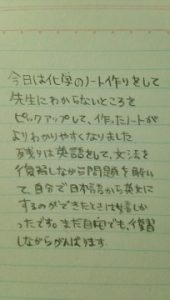 今日は化学のノート作りをして
先生にわからないところを
ピックアップして、作ったノートが
よりわかりやすくなりました
残りは英語をして、文法を
復習しながら問題を解い
て、自分で日本語から英文に
するのができたときは嬉しか
ったです。まだ自宅でも、復習
しながらがんばります